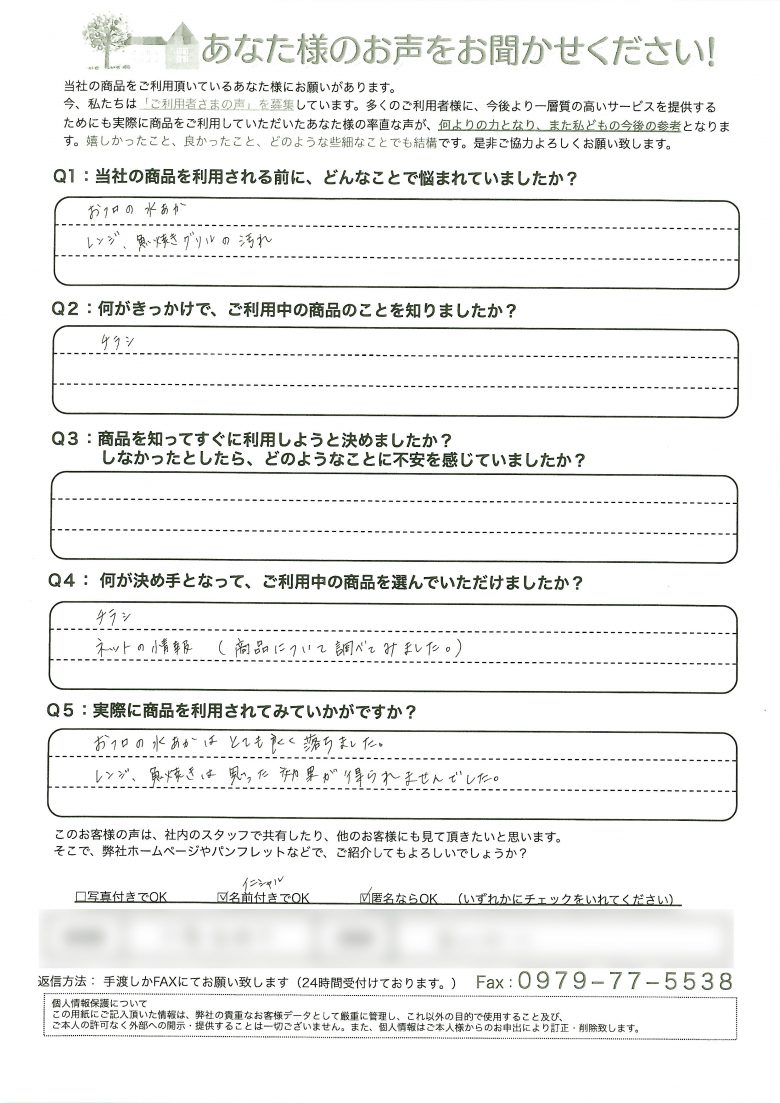 あなた様のお声をお聞かせください!
当社の商品をご利用頂いているあなた様にお願いがあります。
今、私たちは「ご利用者さまの声」を募集しています。多くのご利用者様に、今後より一層質の高いサービスを提供する
ためにも実際に商品をご利用していただいたあなた様の率直な声が、何よりの力となり、また私どもの今後の参考となりま
す。嬉しかったこと、良かったこと、どのような些細なことでも結構です。是非ご協力よろしくお願い致します。
Q1：当社の商品を利用される前に、どんなことで悩まれていましたか？
おフロの水あか
レンジ、魚焼きグリルの汚れ
Q2：何がきっかけで、ご利用中の商品のことを知りましたか？
チラシ
Q3：商品を知ってすぐに利用しようと決めましたか？
しなかったとしたら、どのようなことに不安を感じていましたか？
Q4： 何が決め手となって、ご利用中の商品を選んでいただけましたか？
チラシ
ネットの情報 （商品について調べてみました。）
Q5：実際に商品を利用されてみていかがですか？
おフロの水あかは とても良く落ちました。
レンジ、魚焼きは 思った効果が得られませんでした。
このお客様の声は、社内のスタッフで共有したり、他のお客様にも見て頂きたいと思います。
そこで、弊社ホームページやパンフレットなどで、ご紹介してもよろしいでしょうか？
イニシャル
□写真付きでOK ☑名前付きでOK ☑匿名ならOK （いずれかにチェックをいれてください）
返信方法： 手渡しかFAXにてお願い致します（24時間受付けております。） Fax：0979−77−5538
個人情報保護について
この用紙にご記入頂いた情報は、弊社の貴重なお客様データとして厳重に管理し、これ以外の目的で使用すること及び、
ご本人の許可なく外部への開示・提供することは一切ございません。また、個人情報はご本人様からのお申出により訂正・削除致します。